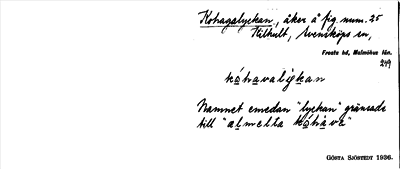 Kohagalyckan, åker å fig. num. 25
Hilhult, Svensköps sn,
Frosta hd, Malmöhus län.
249
kóhavalýkan
Namnet emedan "lyckan" gränsade
till "almelta kóháva"
GÖSTA SJÖSTEDT 1936.